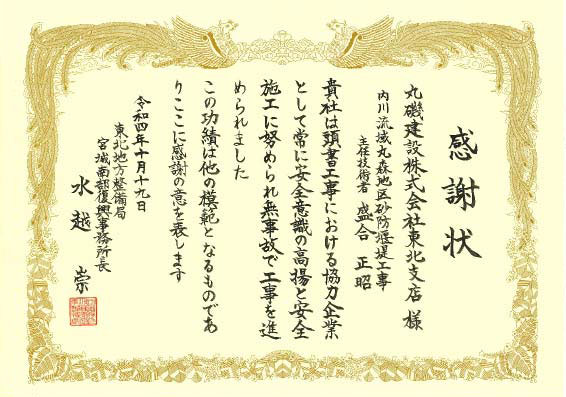 感謝状
丸磯建設株式会社東北支店 様
内川流域丸森地区砂防堰堤工事
主任技術者 盛合 正昭
貴社は頭書工事における協力企業
として常に安全意識の高揚と安全
施工に努められ無事故で工事を進
められました
この功績は他の模範となるものであ
りここに感謝の意を表します
令和四年十月十九日
東北地方整備局
宮城南部復興事務所長
水越 崇